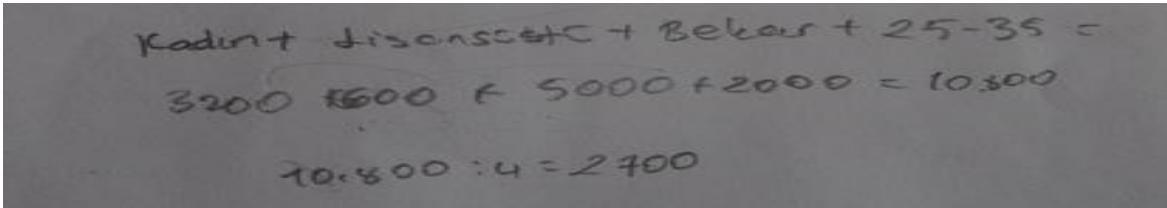 Kadın+ + Bekar + 25-35 =
3200 +600 + 5000 +2000 = 10.800
10.800 : 4 = 2700